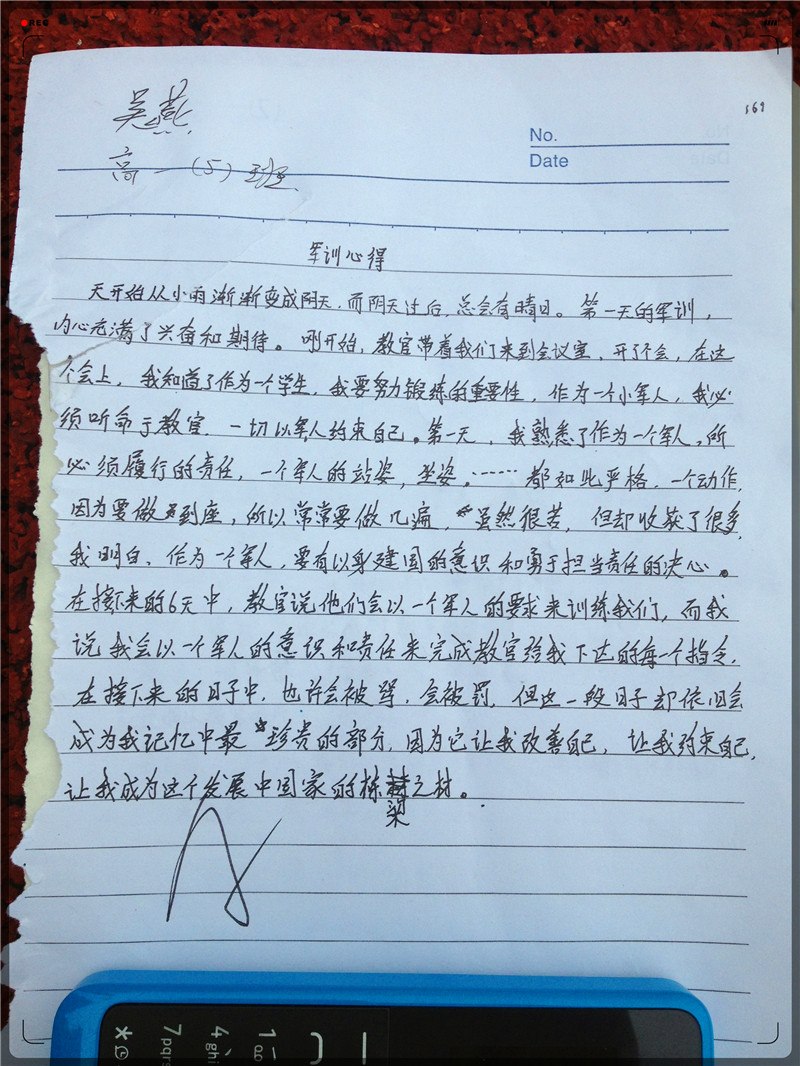 169
吴燕
高一(5)班
No.
Date
军训心得
天开始从小雨渐渐变成阴天,而阴天过后,总会有晴日。第一天的军训,
内心充满了兴奋和期待。刚开始,教官带着我们来到会议室,开了个会,在这
个会上,我知道了作为一个学生,我要努力锻练的重要性,作为一个小军人,我必
须听命于教官,一切以军人约束自己。第一天,我熟悉了作为一个军人,所
必须履行的责任,一个军人的站姿,坐姿。……都如此严格,一个动作,
因为要做到座,所以常常要做几遍,虽然很苦,但却收获了很多,
我明白,作为一个军人,要有以身建国的意识和勇于担当责任的决心。
在接下来的6天中,教官说他们会以一个军人的要求来训练我们,而我
说我会以一个军人的意识和责任来完成教官给我下达的每一个指令,
在接下来的日子中,也许会被骂,会被罚,但这一段日子却依旧会
成为我记忆中最珍贵的部分,因为它让我改善自己,让我约束自己,
让我成为这个发展中国家的栋梁之材。
1
4 ghi
7 pqrs
*